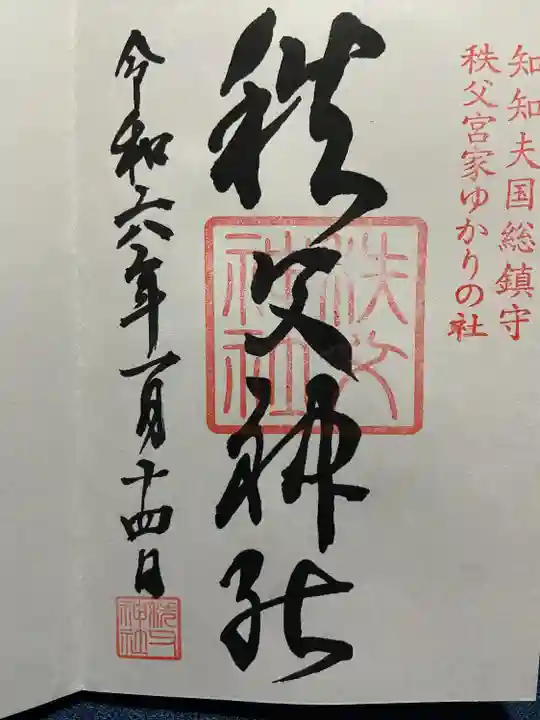 知知夫国総鎮守
秩父宮家ゆかりの社
秩父神社
秩父神社
令和六年一月十四日
秩父神社